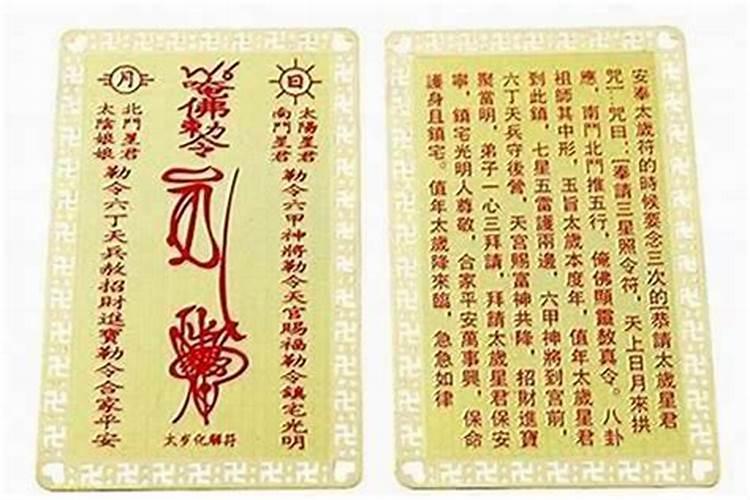 日
太陽星君
南鬥星君
勒令六甲神將勒令天官賜福勒令鎮宅光明
唵佛勅令
太岁化解符
月
北鬥星君
太陰娘娘
勒令六丁天兵赦招財進寶勒令合家平安
安奉太歲符的時候要念三次的[恭請太歲星君
咒]…咒曰：[奉請三星照令符，天上日月來拱
應，南鬥北鬥推五行，俺佛顯靈敕真令。八卦
祖師其中形，玉旨太歲本度年，值年太歲星君
到此鎮，七星五雷護兩邊，六甲神將到宮前，
六丁天兵守後營，天宮賜富神共降，招財進寶
聚當明，弟子一心三拜請，拜請太歲星君保安
寧，鎮宅光明人尊敬，合家平安萬事興，保命
護身且鎮宅。值年太歲降來臨，急急如律